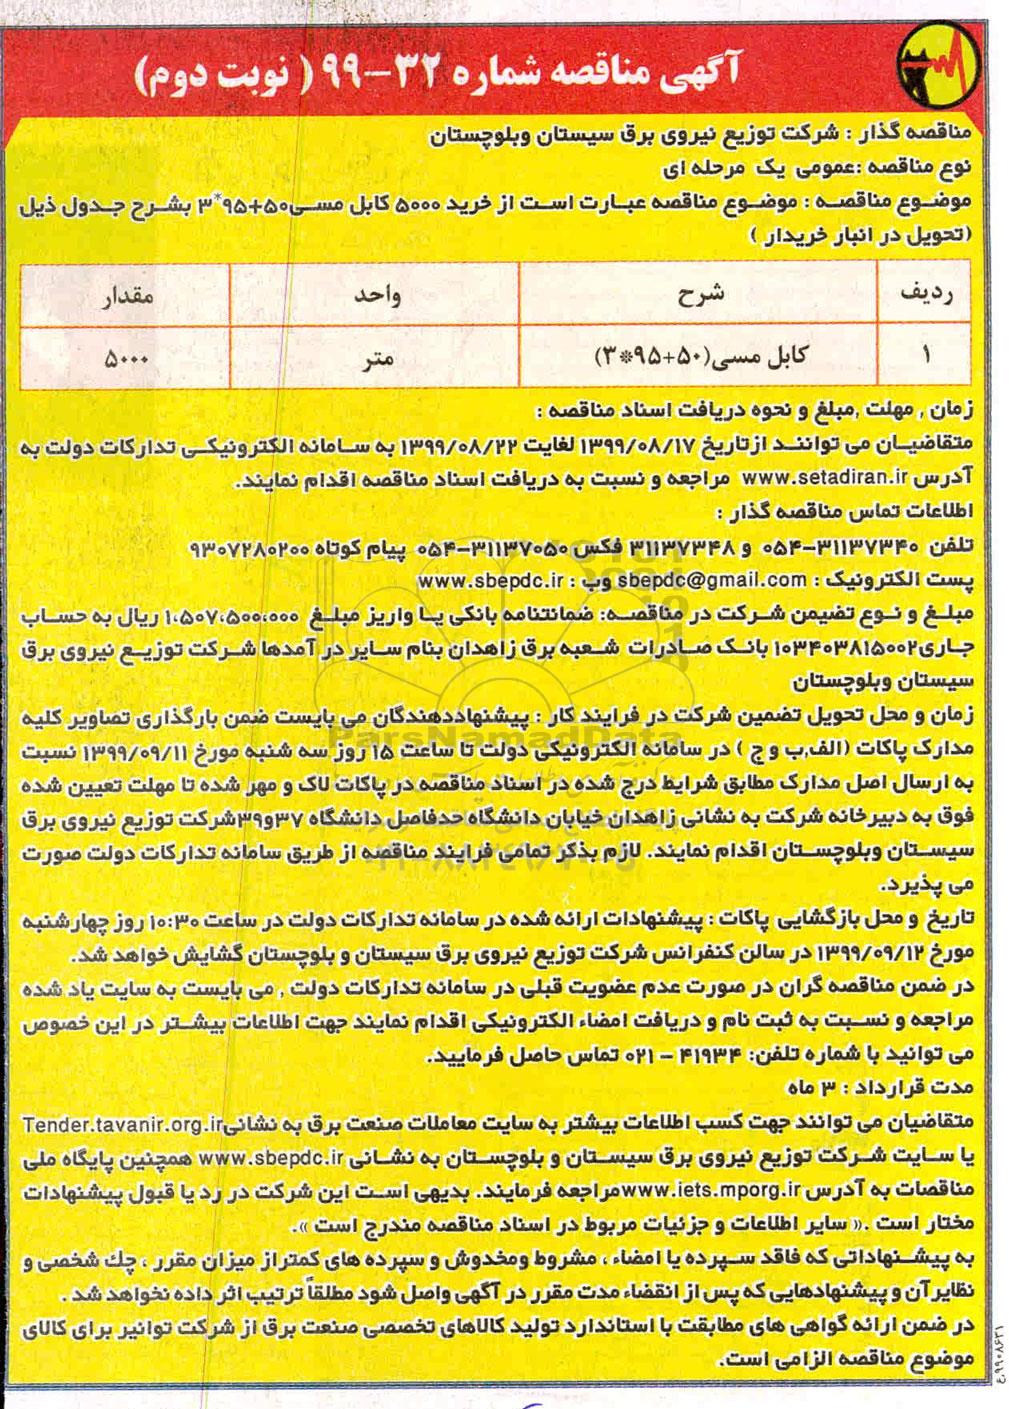 آگهی مناقصه شماره ۳۲-۹۹ ( نوبت دوم)
مناقصه گذار : شرکت توزیع نیروی برق سیستان وبلوچستان
نوع مناقصه :عمومی یک مرحله ای
موضوع مناقصه : موضوع مناقصه عبارت است از خرید ۵۰۰۰ کابل مسی۵۰+۹۵*۳ بشرح جدول ذیل
(تحویل در انبار خریدار )
ردیف شرح واحد مقدار
۱ کابل مسی(۵۰+۹۵*۳) متر ۵۰۰۰
زمان , مهلت ,مبلغ و نحوه دریافت اسناد مناقصه :
متقاضیان می توانند ازتاریخ ۱۳۹۹/۰۸/۱۷ لغایت ۱۳۹۹/۰۸/۲۲ به سامانه الکترونیکی تدارکات دولت به
آدرس www.setadiran.ir مراجعه و نسبت به دریافت اسناد مناقصه اقدام نمایند.
اطلاعات تماس مناقصه گذار :
تلفن ۳۱۱۳۷۳۴۰-۰۵۴ و ۳۱۱۳۷۳۴۸ فکس ۳۱۱۳۷۰۵۰-۰۵۴ پیام کوتاه ۹۳۰۷۲۸۰۲۰۰
پست الکترونیک : sbepdc@gmail.com وب : www.sbepdc.ir
مبلغ و نوع تضیمن شرکت در مناقصه: ضمانتنامه بانکی یا واریز مبلغ ۱،۵۰۷،۵۰۰،۰۰۰ ریال به حساب
جاری۱۰۳۴۰۳۸۱۵۰۰۲ بانک صادرات شعبه برق زاهدان بنام سایر در آمدها شرکت توزیع نیروی برق
سیستان وبلوچستان
زمان و محل تحویل تضمین شرکت در فرایند کار : پیشنهاددهندگان می بایست ضمن بارگذاری تصاویر کلیه
مدارک پاکات (الف,ب و ج ) در سامانه الکترونیکی دولت تا ساعت ۱۵ روز سه شنبه مورخ ۱۳۹۹/۰۹/۱۱ نسبت
به ارسال اصل مدارک مطابق شرایط درج شده در اسناد مناقصه در پاکات لاک و مهر شده تا مهلت تعیین شده
فوق به دبیرخانه شرکت به نشانی زاهدان خیابان دانشگاه حدفاصل دانشگاه ۳۷و۳۹شرکت توزیع نیروی برق
سیستان وبلوچستان اقدام نمایند. لازم بذکر تمامی فرایند مناقصه از طریق سامانه تدارکات دولت صورت
می پذیرد.
تاریخ و محل بازگشایی پاکات : پیشنهادات ارائه شده در سامانه تدارکات دولت در ساعت ۱۰:۳۰ روز چهارشنبه
مورخ ۱۳۹۹/۰۹/۱۲ در سالن کنفرانس شرکت توزیع نیروی برق سیستان و بلوچستان گشایش خواهد شد.
در ضمن مناقصه گران در صورت عدم عضویت قبلی در سامانه تدارکات دولت , می بایست به سایت یاد شده
مراجعه و نسبت به ثبت نام و دریافت امضاء الکترونیکی اقدام نمایند جهت اطلاعات بیشتر در این خصوص
می توانید با شماره تلفن: ۴۱۹۳۴ - ۰۲۱ تماس حاصل فرمایید.
مدت قرارداد : ۳ ماه
متقاضیان می توانند جهت کسب اطلاعات بیشتر به سایت معاملات صنعت برق به نشانیTender.tavanir.org.ir
یا سایت شرکت توزیع نیروی برق سیستان و بلوچستان به نشانی www.sbepdc.ir همچنین پایگاه ملی
مناقصات به آدرس www.iets.mporg.irمراجعه فرمایند. بدیهی است این شرکت در رد یا قبول پیشنهادات
مختار است .« سایر اطلاعات و جزئیات مربوط در اسناد مناقصه مندرج است ».
به پیشنهاداتی که فاقد سپرده یا امضاء ، مشروط ومخدوش و سپرده های کمتراز میزان مقرر ، چك شخصی و
نظایرآن و پیشنهادهایی که پس از انقضاء مدت مقرر در آگهی واصل شود مطلقاً ترتیب اثر داده نخواهد شد .
در ضمن ارائه گواهی های مطابقت با استاندارد تولید کالاهای تخصصی صنعت برق از شرکت توانیر برای کالای
موضوع مناقصه الزامی است.
ParsNamadData
۹۹۰۸۶۳۱/ع